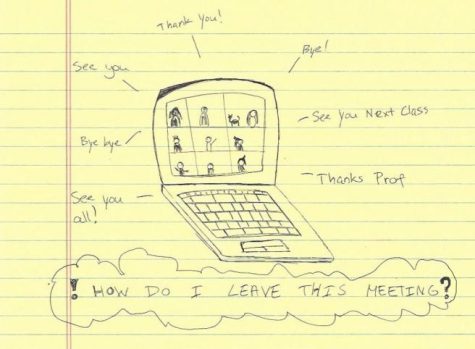 Thank You!
Bye!
See you
See You Next Class
Bye bye
Thanks Prof
See you
all!
! HOW DO I LEAVE THIS MEETING?